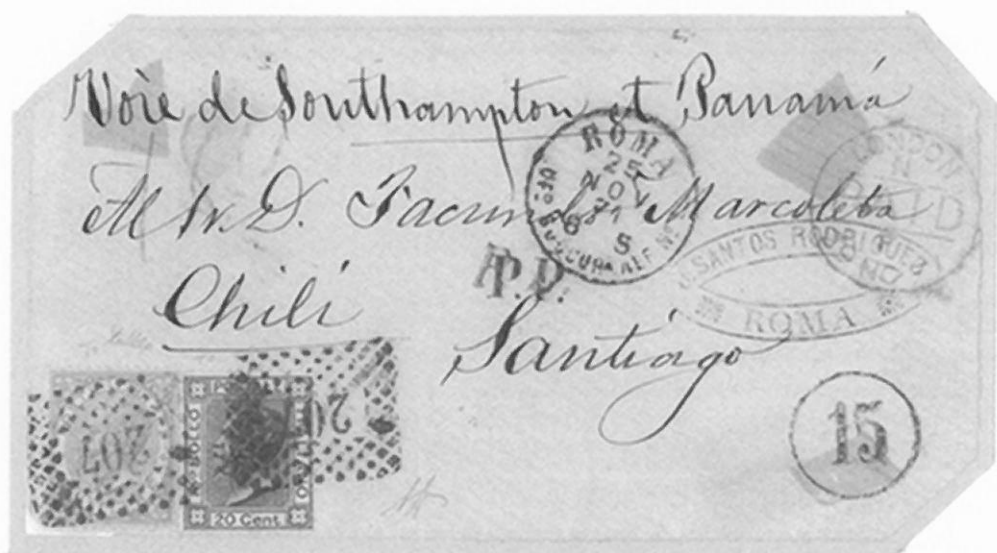 Voie de Southampton et Panamá
ROMA
25
NOV
71
8 S
LONDON
PAID
M Sr. D. Facundo Marcoleta
SANTOS RODRIGUEZ
ROMA
P.D.
Chili
Santiago
207
20
FRANCOBOLLO
20 Cent.
15